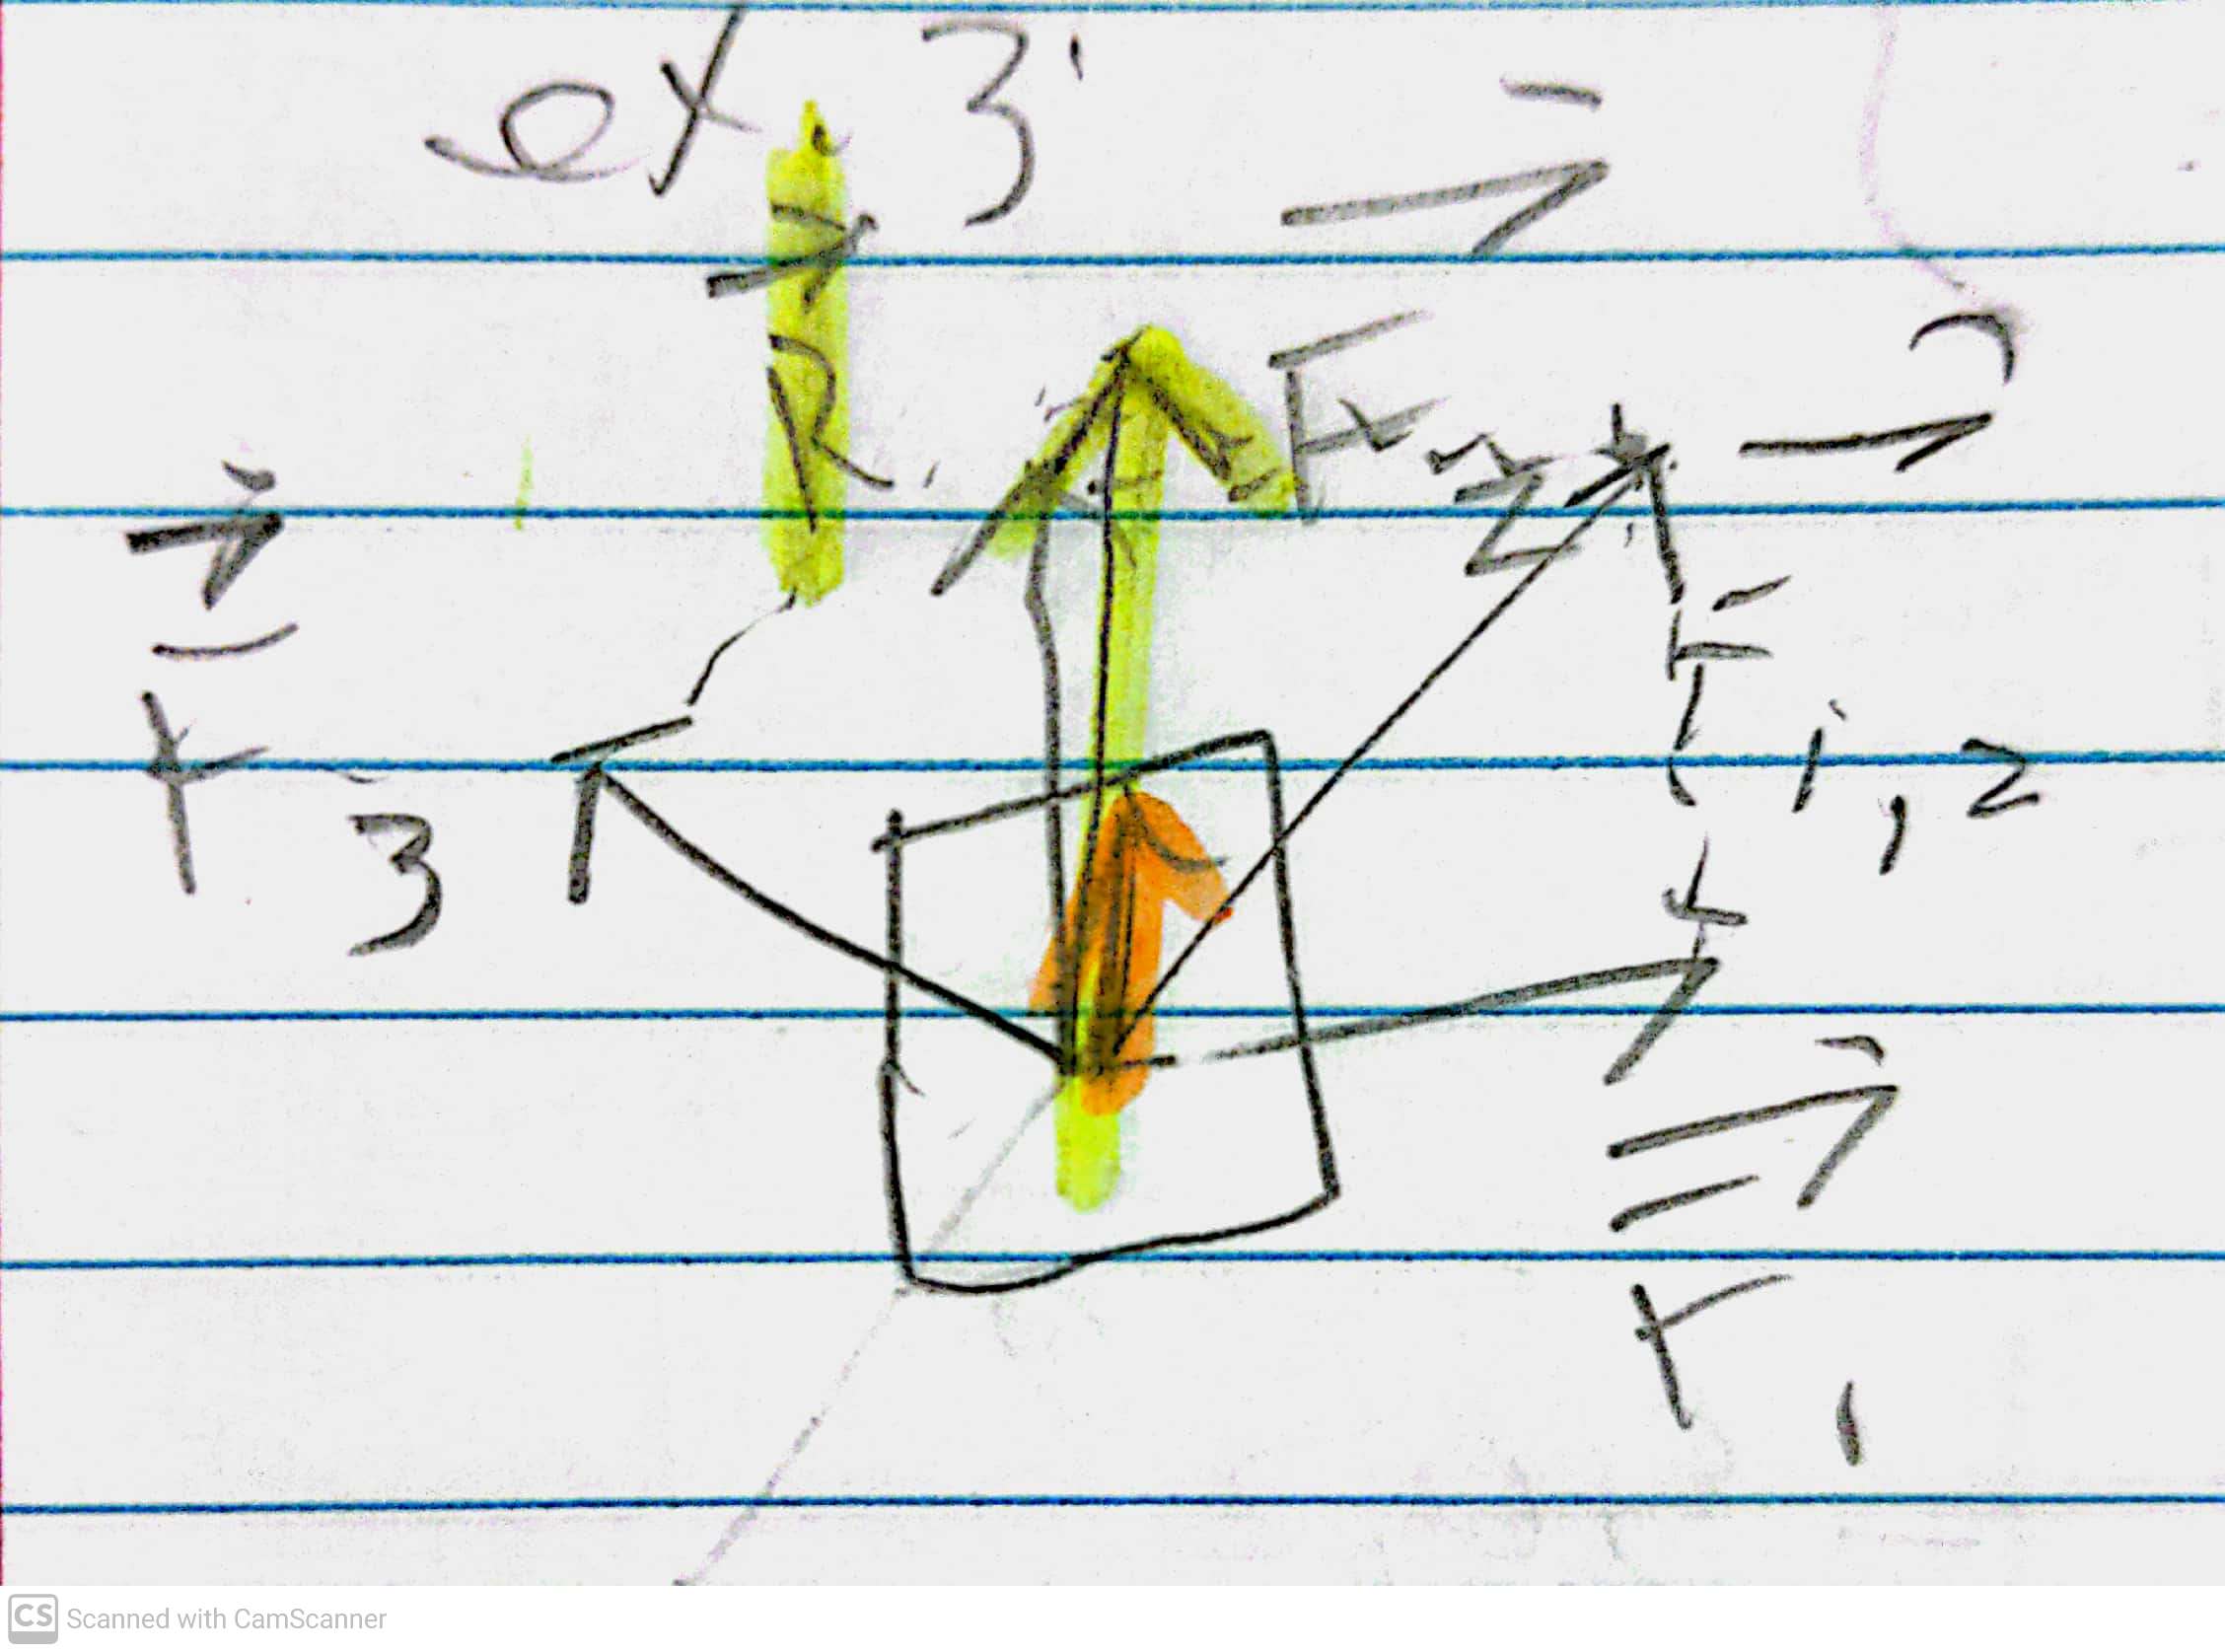 ex. 3
R
F2
F1,2
F3
F1
CS Scanned with CamScanner